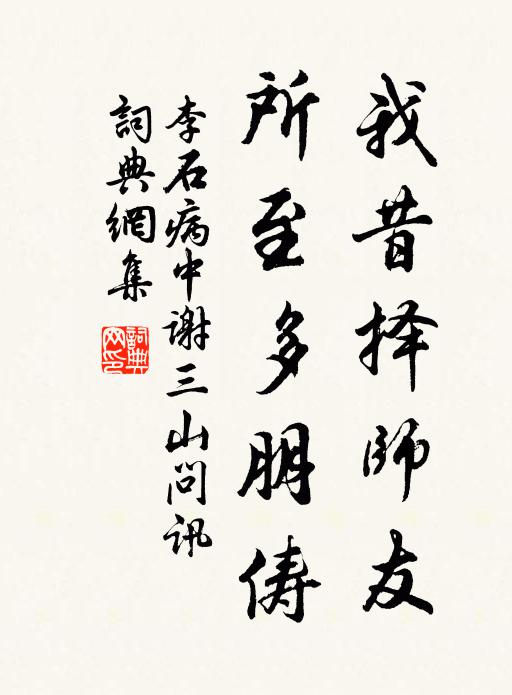 我昔择師友
所至多朋俦
李石病中谢三山問訊
詞典網集
詞典網印